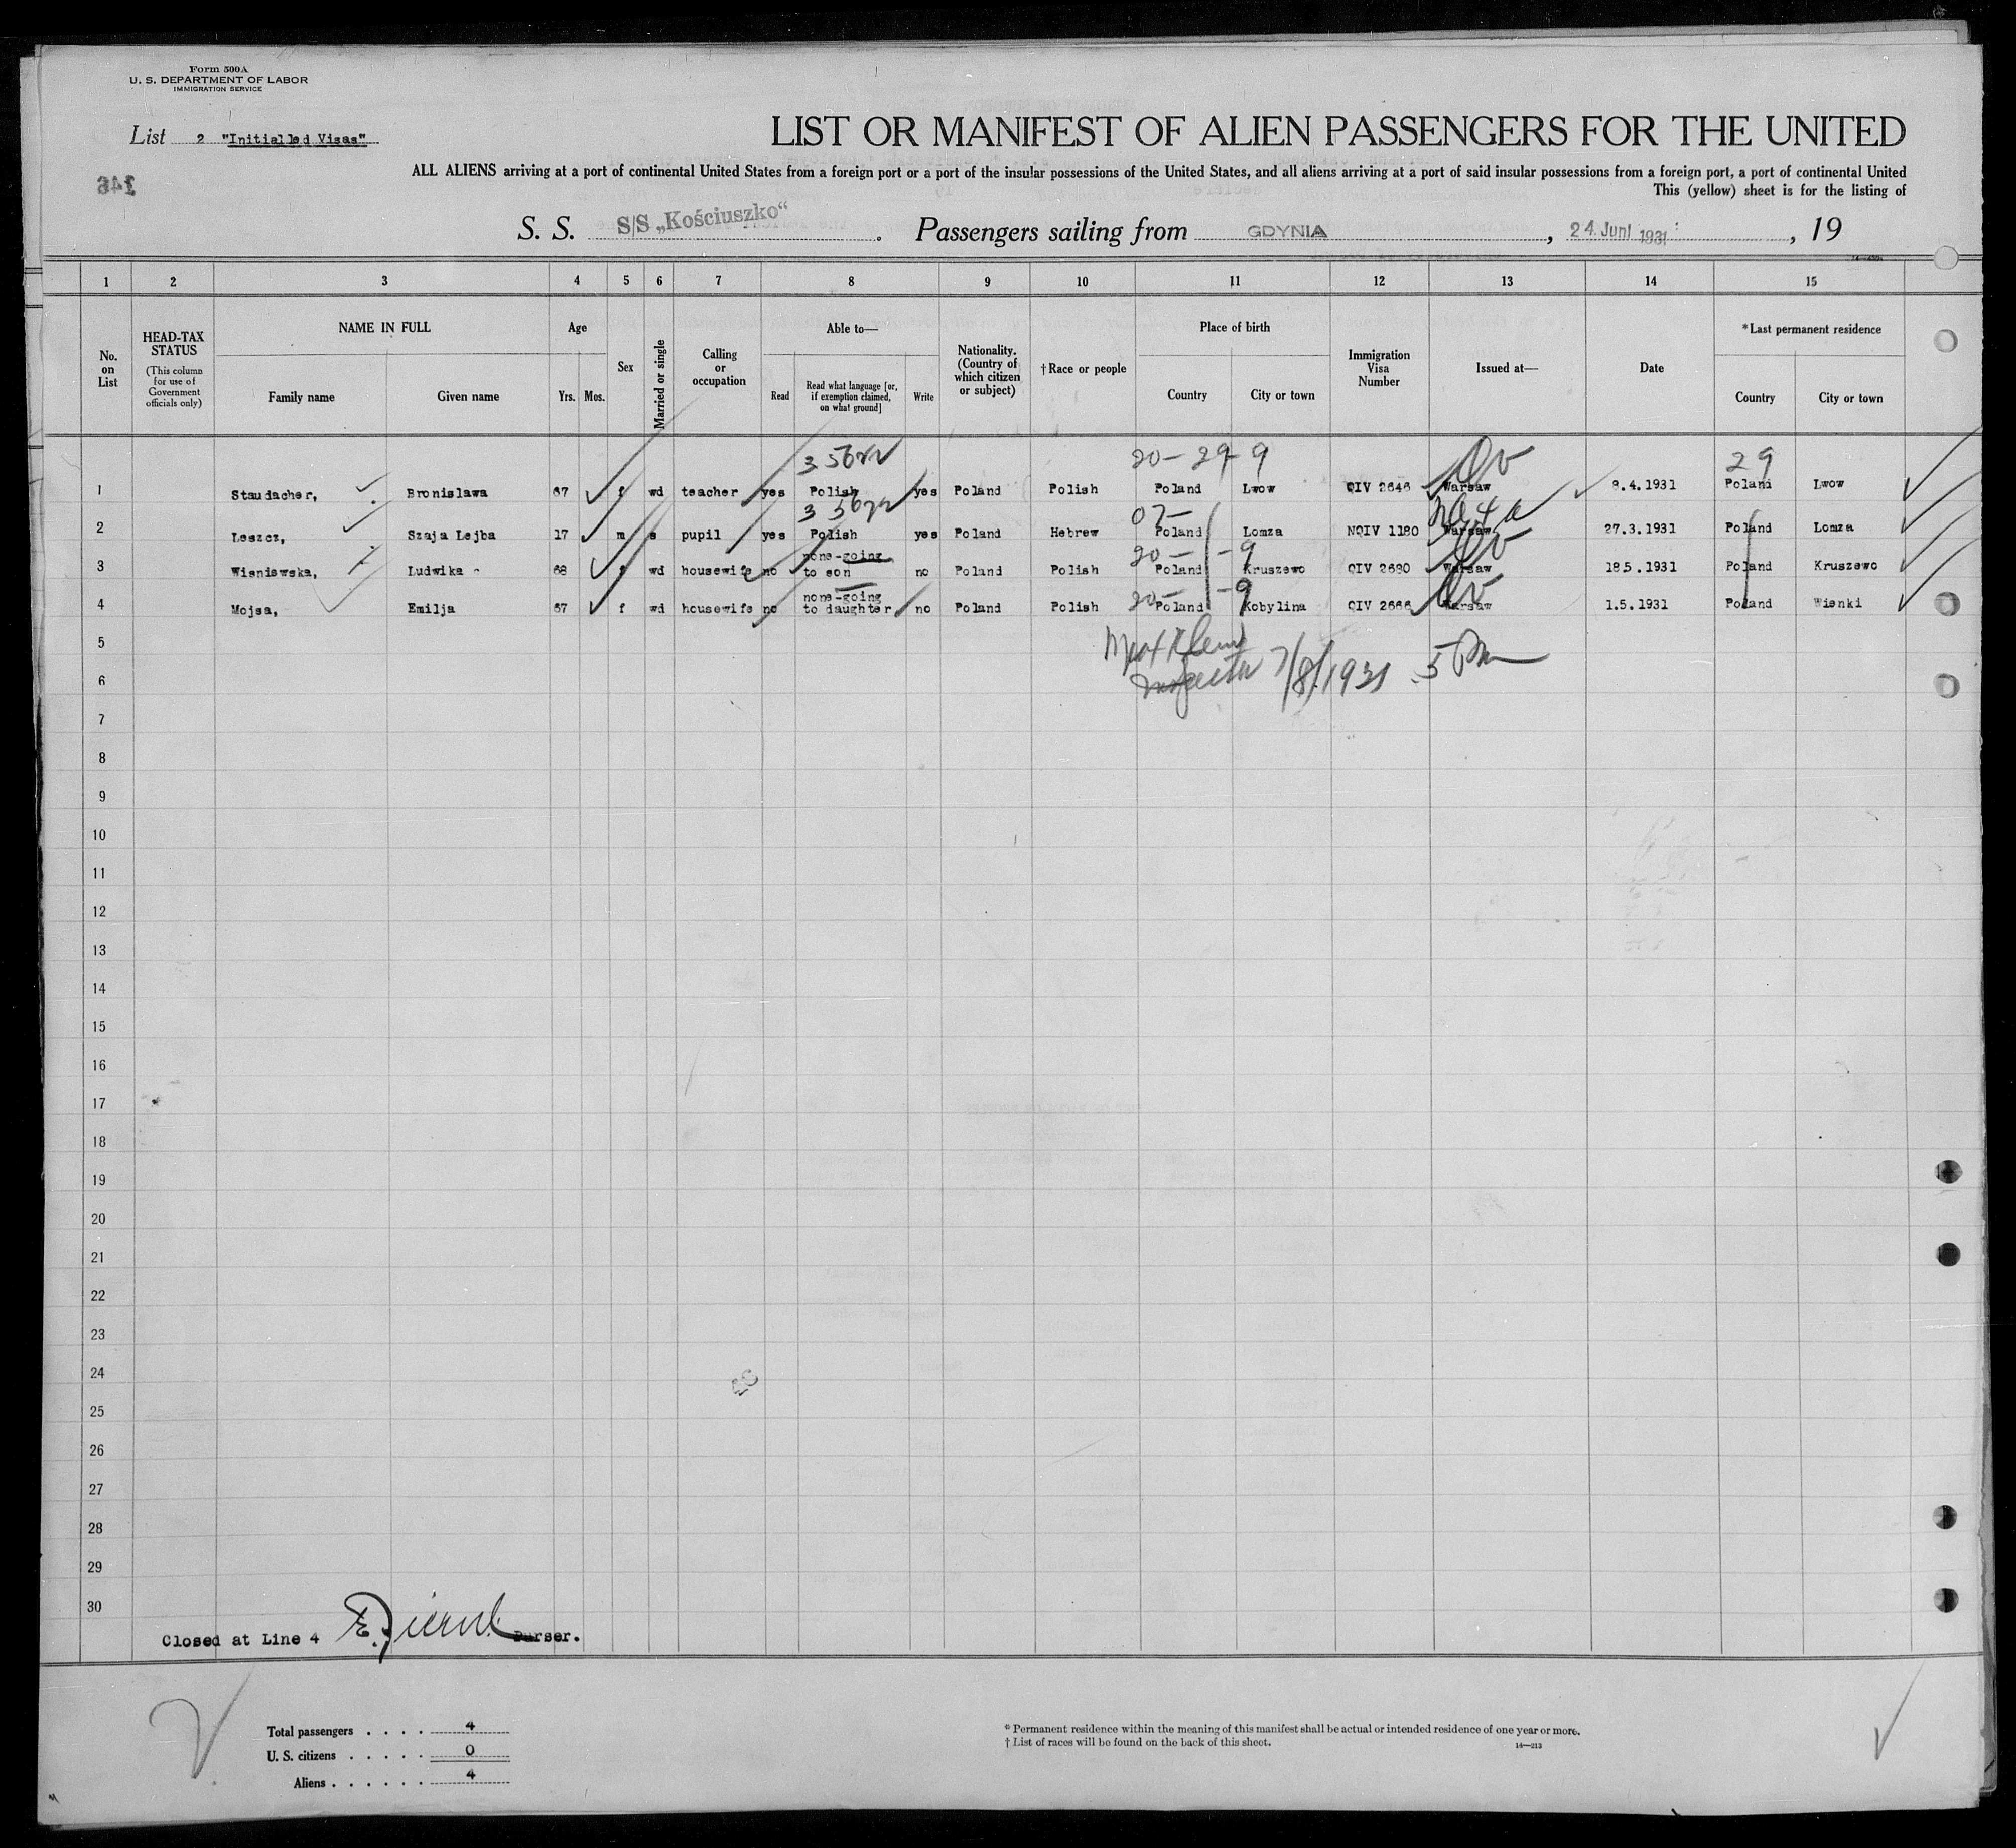 Form 500A
U. S. DEPARTMENT OF LABOR
IMMIGRATION SERVICE
List 2 "Initialled Visas"
LIST OR MANIFEST OF ALIEN PASSENGERS FOR THE UNITED
ALL ALIENS arriving at a port of continental United States from a foreign port or a port of the insular possessions of the United States, and all aliens arriving at a port of said insular possessions from a foreign port, a port of continental United
This (yellow) sheet is for the listing of
346
S. S. S/S „Kościuszko“ . Passengers sailing from GDYNIA , 24. Juni 1931 , 19
1 2 3 4 5 6 7 8 9 10 11 12 13 14 15
No. on List
HEAD-TAX STATUS
(This column for use of Government officials only)
NAME IN FULL
Family name Given name
Age
Yrs. Mos.
Sex
Married or single
Calling or occupation
Able to—
Read
Read what language [or, if exemption claimed, on what ground]
Write
Nationality. (Country of which citizen or subject)
†Race or people
Place of birth
Country City or town
Immigration Visa Number
Issued at—
Date
*Last permanent residence
Country City or town
20 - 29 - 9 29
1 Staudacher, Bronislawa 67 f wd teacher yes Polish yes Poland Polish Poland Lwow QIV 2646 Warsaw 8.4.1931 Poland Lwow
07-
2 Leszcz, Szaja Lejba 17 m s pupil yes Polish yes Poland Hebrew Poland Lomza NQIV 1180 Warsaw 27.3.1931 Poland Lomza
20 - - 9
3 Wisniewska, Ludwika 68 f wd housewife no none-going to son no Poland Polish Poland Kruszewo QIV 2680 Warsaw 18.5.1931 Poland Kruszewo
20 - - 9
4 Mojsa, Emilja 67 f wd housewife no none-going to daughter no Poland Polish Poland Kobylina QIV 2666 Warsaw 1.5.1931 Poland Wienki
5
7/8/1931
6
7
8
9
10
11
12
13
14
15
16
17
18
19
20
21
22
23
24
25
26
27
28
29
30
Closed at Line 4 Purser.
Total passengers . . . . 4
U. S. citizens . . . . . 0
Aliens . . . . . . 4
* Permanent residence within the meaning of this manifest shall be actual or intended residence of one year or more.
† List of races will be found on the back of this sheet.
14—213